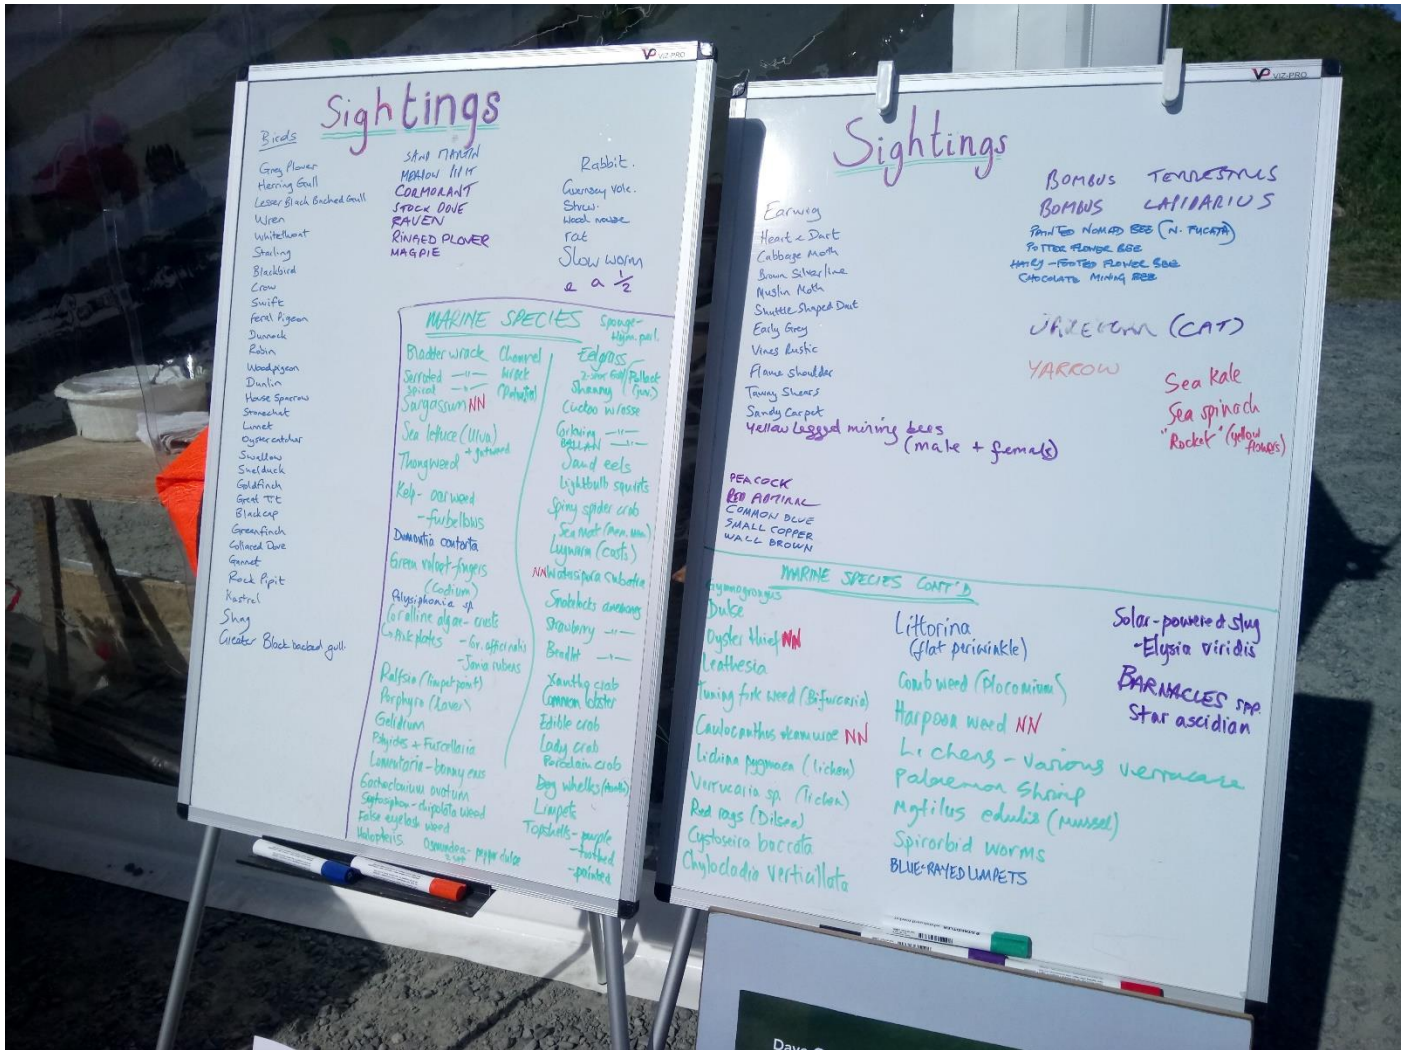 VIZ-PRO
Sightings
Birds
Grey Plover
Herring Gull
Lesser Black Backed Gull
Wren
Whitethroat
Starling
Blackbird
Crow
Swift
feral Pigeon
Dunnock
Robin
Woodpigeon
Dunlin
House Sparrow
Stonechat
Linnet
Oystercatcher
Swallow
Shelduck
Goldfinch
Great Tit
Blackcap
Greenfinch
Collared Dove
Gannet
Rock Pipit
Kestrel
Shag
Greater Black backed gull.
SAND MARTIN
CORMORANT
STOCK DOVE
RAVEN
RINGED PLOVER
MAGPIE
Rabbit.
Guernsey vole.
Shrew.
Wood mouse
rat
Slow worm
a ½
MARINE SPECIES
Sponge-
Bladder wrack
Channel
wrack
Serrated —"—
Spiral —"—
Sargassum NN
Sea lettuce (Ulva)
+ gutweed
Thongweed
Kelp - oarweed
- furbellows
Dumontia contorta
Green velvet-fingers
(Codium)
Polysiphonia sp
Coralline algae - crusts
- Cor. officinalis
- Jania rubens
Ralfsia (limpet paint)
Porphyra (Laver)
Gelidium
Polyides + Furcellaria
Lomentaria - bunny ears
Gastroclonium ovatum
Scytosiphon - chipolata weed
False eyelash weed
Halopteris
Osmundea - pepper dulse
Eelgrass
Pollack
(juv.)
Shanny
Cuckoo wrasse
Corkwing —"—
BALLAN —"—
Sand eels
Lightbulb squirts
Spiny spider crab
Sea mat (Mem. mem)
Lugworm (casts)
NN Watersipora subatra
Snakelocks anemones
Strawberry —"—
Beadlet —"—
Xantho crab
Common lobster
Edible crab
Lady crab
Porcelain crab
Dog whelks
Limpets
Topshells - purple
- toothed
- painted
VIZ-PRO
Sightings
Earwig
Heart & Dart
Cabbage Moth
Brown Silverline
Muslin Moth
Shuttle Shaped Dart
Early Grey
Vines Rustic
Flame shoulder
Tawny Shears
Sandy Carpet
Yellow Legged mining bees
(male + female)
PEACOCK
RED ADMIRAL
COMMON BLUE
SMALL COPPER
WALL BROWN
BOMBUS TERRESTRIS
BOMBUS LAPIDARIUS
PAINTED NOMAD BEE (N. FUCATA)
POTTER FLOWER BEE
HAIRY-FOOTED FLOWER BEE
CHOCOLATE MINING BEE
(CAT)
YARROW
Sea Kale
Sea spinach
"Rocket" (yellow
flowers)
MARINE SPECIES CONT'D
Gymnogongrus
Dulse
Oyster thief NN
Leathesia
Tuning fork weed (Bifurcaria)
Caulacanthus okamurae NN
Lichina pygmaea (lichen)
Verrucaria sp. (lichen)
Red rags (Dilsea)
Cystoseira baccata
Chylocladia verticillata
Littorina
(flat periwinkle)
Comb weed (Plocamium)
Harpoon weed NN
Lichens - various
Palaemon shrimp
Mytilus edulis (mussel)
Spirorbid worms
BLUE-RAYED LIMPETS
Solar-powered slug
- Elysia viridis
BARNACLES spp.
Star ascidian